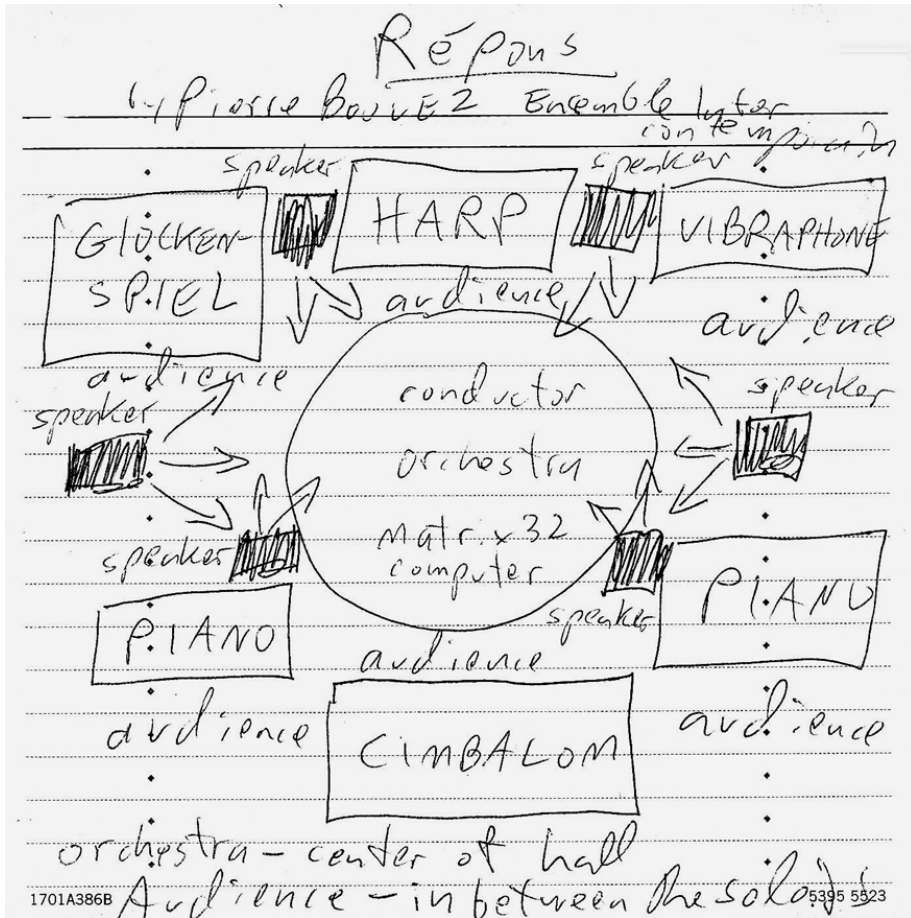 Répons
by Pierre BOUVEZ Ensemble Inter
contemporain
speaker
speaker
GLOCKEN-
SPIEL
HARP
VIBRAPHONE
audience
audience
audience
speaker
speaker
conductor
orchestra
Matrix 32
computer
speaker
speaker
PIANO
PIANO
audience
audience
audience
CIMBALOM
orchestra - center of hall
Audience - in between the soloists
1701A386B
5395 5523